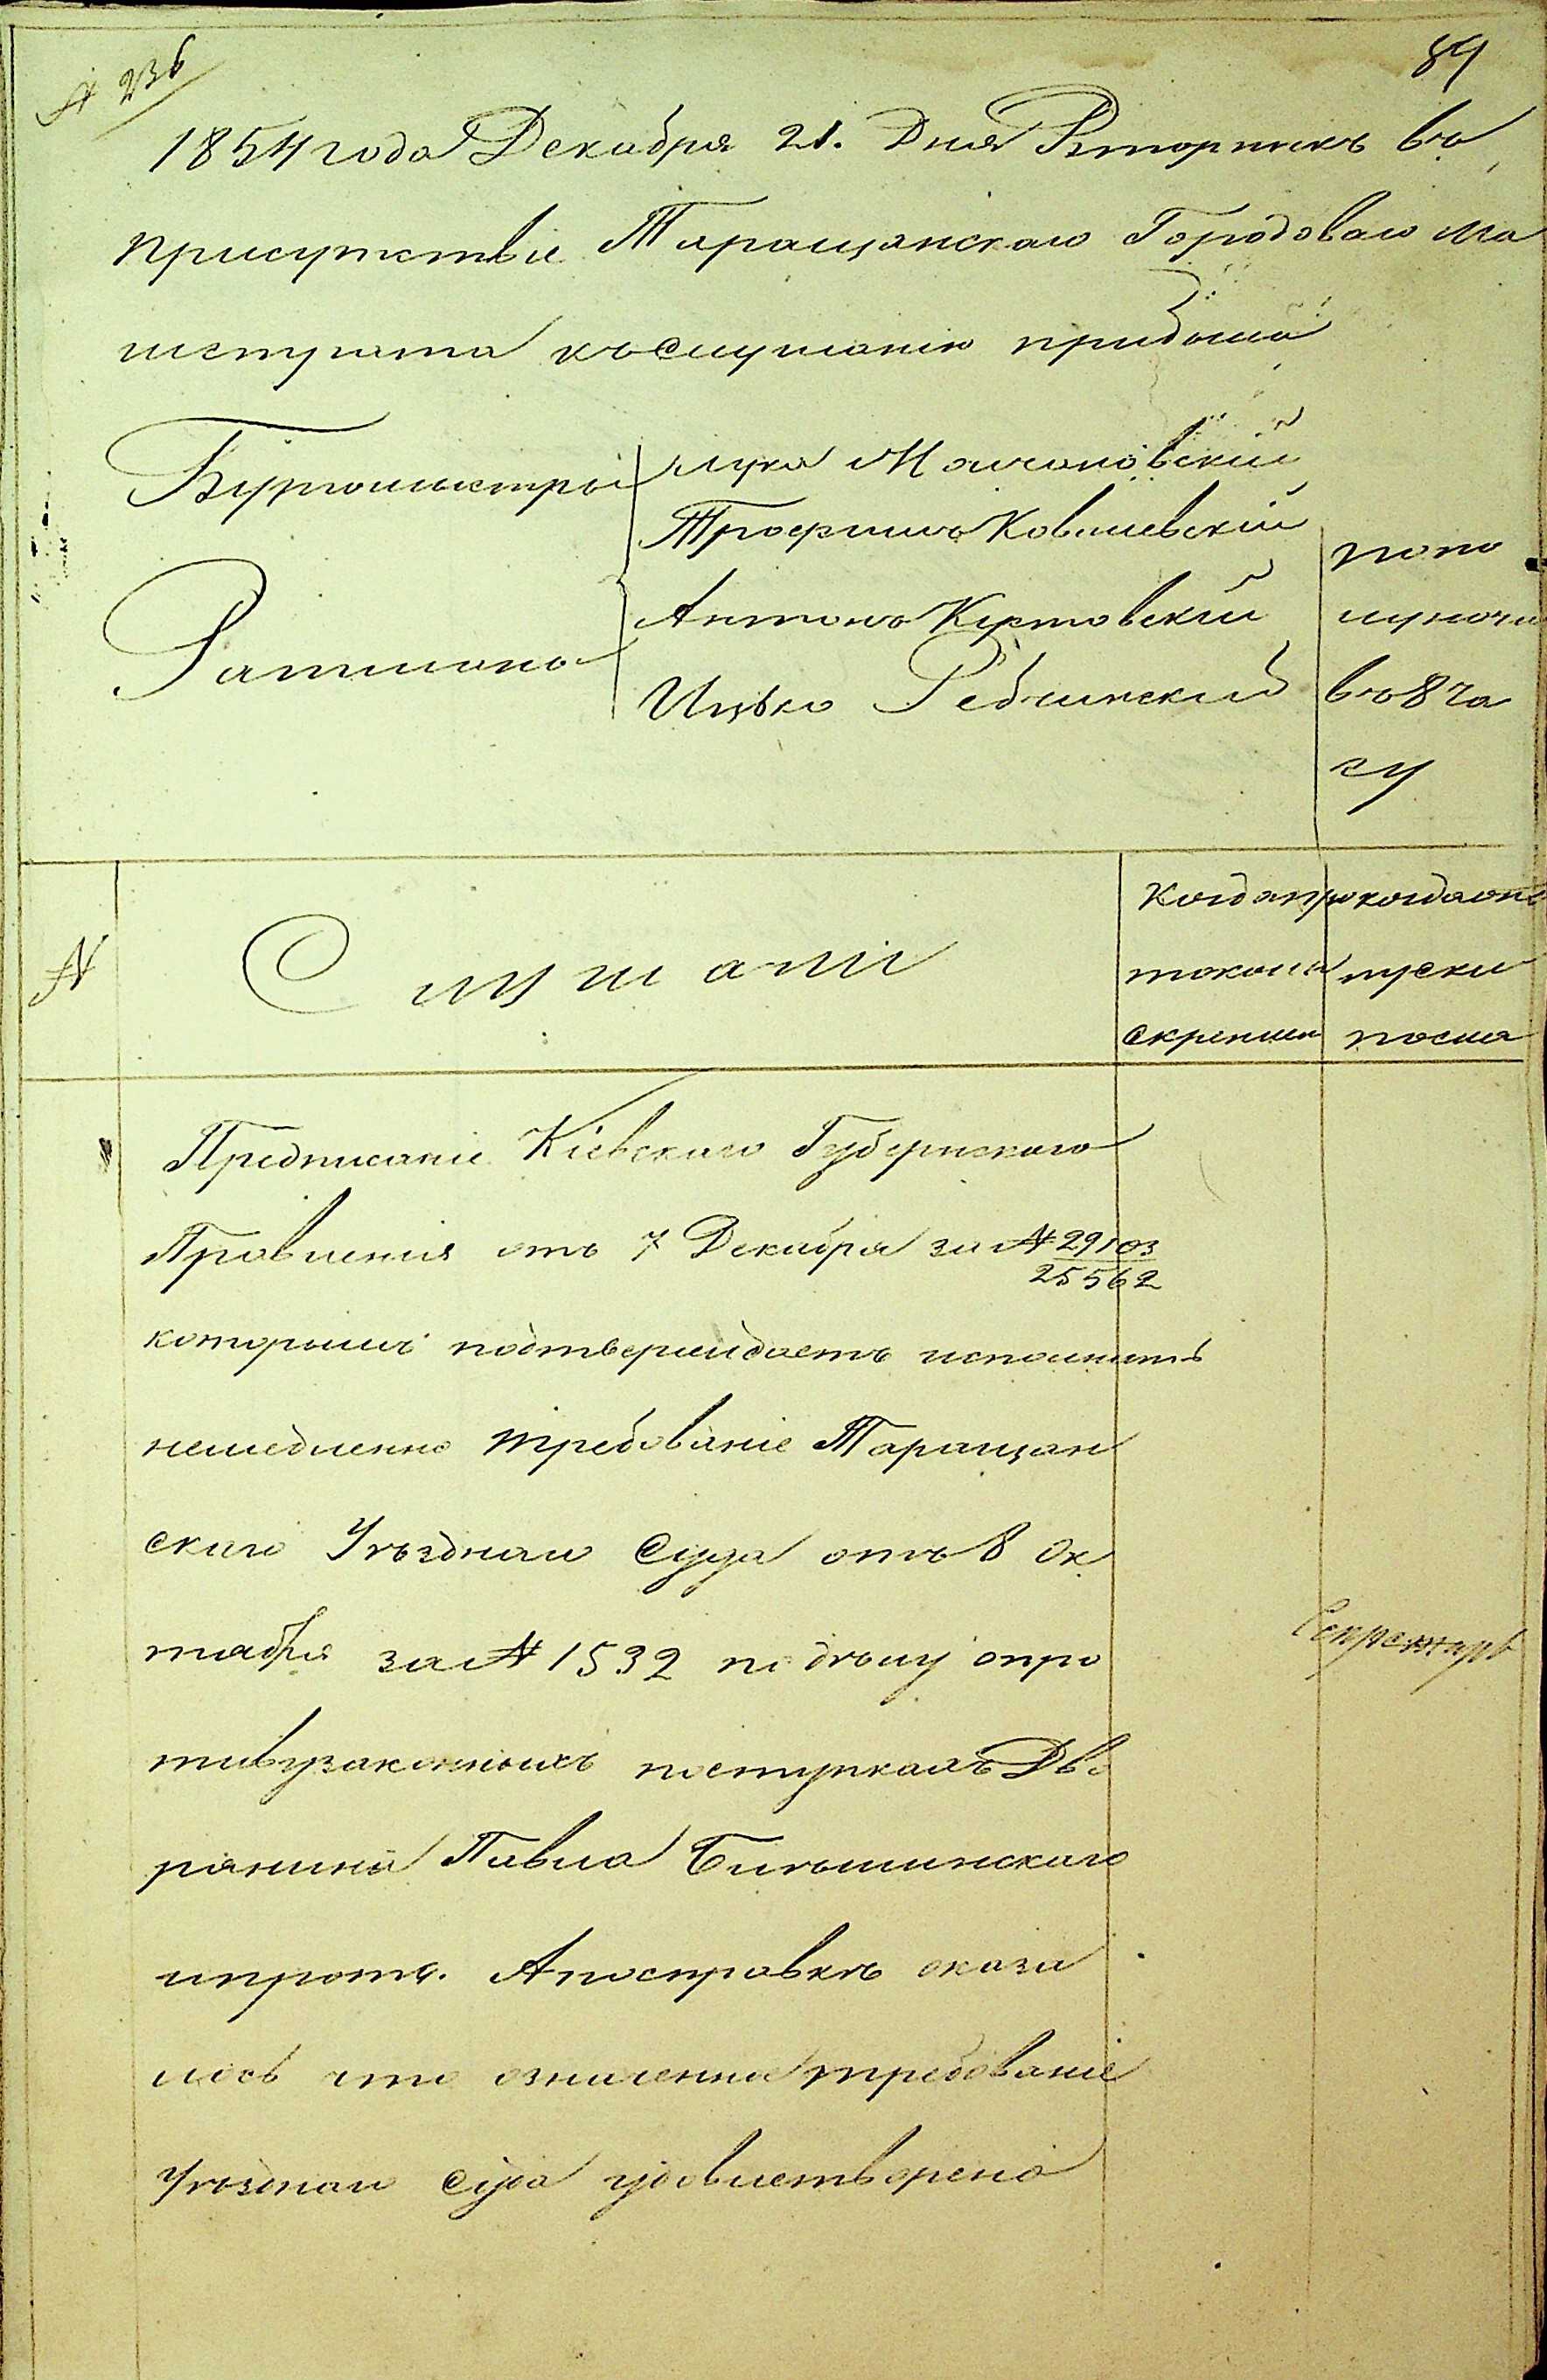 № 236
89
1854 года Декабря 21. Дня Вторникъ въ
присутствіе Таращанскаго Городоваго Ма
гистрата къ слушанію прибыли
Бургомистры
Лука
Трофимъ Ковалевскій
Ратманы
Антонъ Куртовскій
Ицько Ребчинскій
попо
луночи
въ 8 ча
су
№
Слушали
Когда про
токолъ
скрепленъ
когда от
пуски
посла
Предписаніе Кіевскаго Губернскаго
Правленія отъ 7 Декабря за № 29103
25562
которымъ подтверждаетъ исполнить
немедленно требованіе Таращан
скаго Уѣзднаго Суда отъ 8 Ок
тября за № 1532 по дѣлу о про
тивузаконныхъ поступкахъ Дво
рянина Павла
и проч. А по справкѣ оказа
лось что означенное требованіе
Уѣзднаго Суда удовлетворено
Секретарь